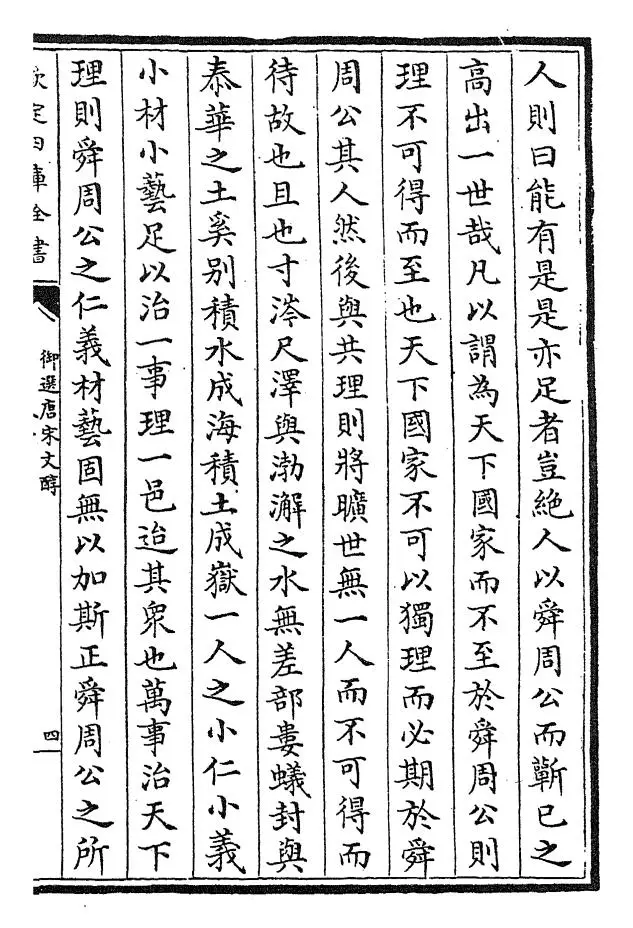 人則曰能有是是亦足者豈絶人以舜周公而蘄已之
高出一世哉凡以謂為天下國家而不至於舜周公則
理不可得而至也天下國家不可以獨理而必期於舜
周公其人然後與共理則將曠世無一人而不可得而
待故也且也寸涔尺澤與渤澥之水無差部婁蟻封與
泰華之土奚别積水成海積土成嶽一人之小仁小義
小材小藝足以治一事理一邑迨其衆也萬事治天下
理則舜周公之仁義材藝固無以加斯正舜周公之所
欽定四庫全書
御選唐宋文醇
四